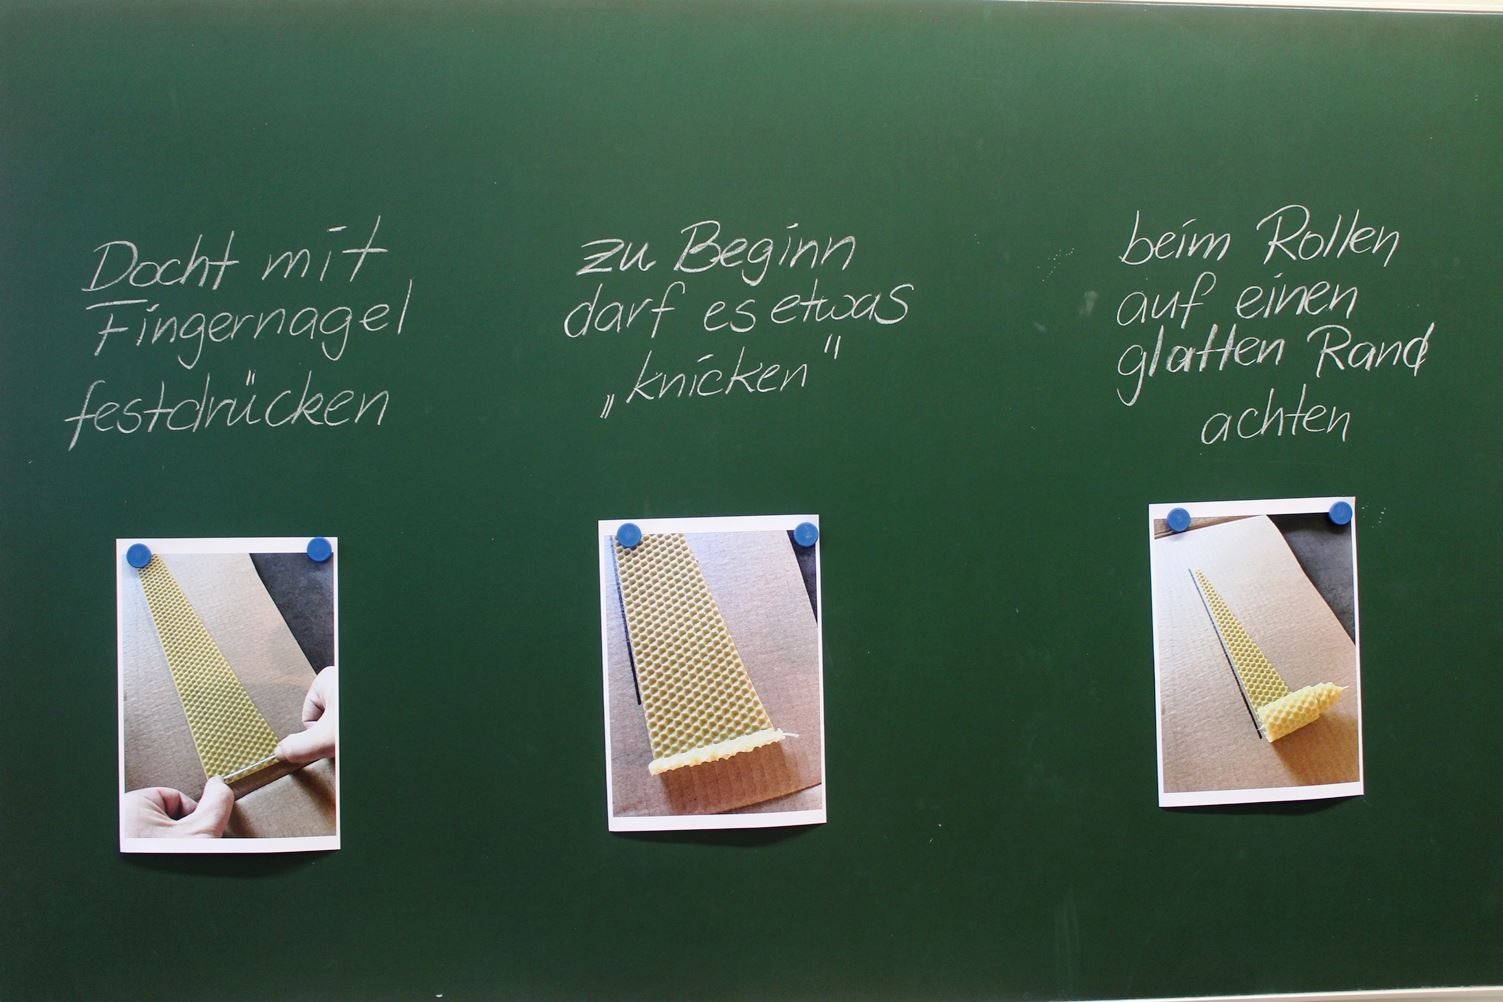 Docht mit
Fingernagel
festdrücken
zu Beginn
darf es etwas
„knicken"
beim Rollen
auf einen
glatten Rand
achten